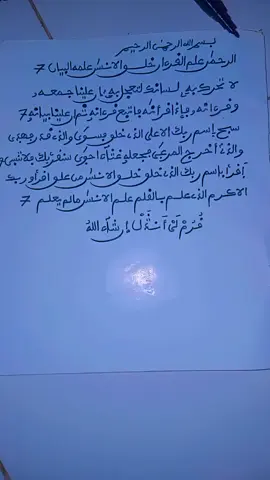 بسم الله الرحمن الرحيم
الرحمن علم القرءان خلق الانسن علمه البيان 7
لا تحرك به لسانك لتعجل به ان علينا جمعه و
وقرءانه فإذا قرأنه فاتبع قرءانه ثم ان علينا بيانه 7
سبح اسم ربك الاعلى الذى خلق فسوى والذى قدر فهدى
والذى أخرج المرعى فجعله غثاء احوى سنقرئك فلا تنسى
إقرأ باسم ربك الذى خلق خلق الانسن من علق اقرأ وربك
الاكرم الذى علم بالقلم علم الانسن مالم يعلم 7
إن شاء الله